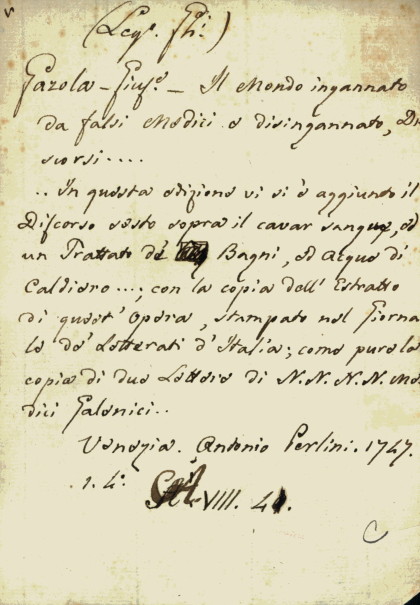 (Leg. Ph.)
Gazola - Gius.e - Il Mondo ingannato
da falsi Medici e disingannato, Di
scorsi....
.. In questa edizione vi si è aggiunto il
Discorso sesto sopra il cavar sangue, ed
un Trattato de' Bagni, ed Acque di
Caldiero...; con la copia dell' Estratto
di quest' Opera, stampato nel Giorna
le de' Letterati d' Italia; come pure la
copia di due Lettere di N.N. N.N. Me
dici Galenici..
Venezia. Antonio Perlini. 1747.
.1. 4.o
VIII. 41.
C